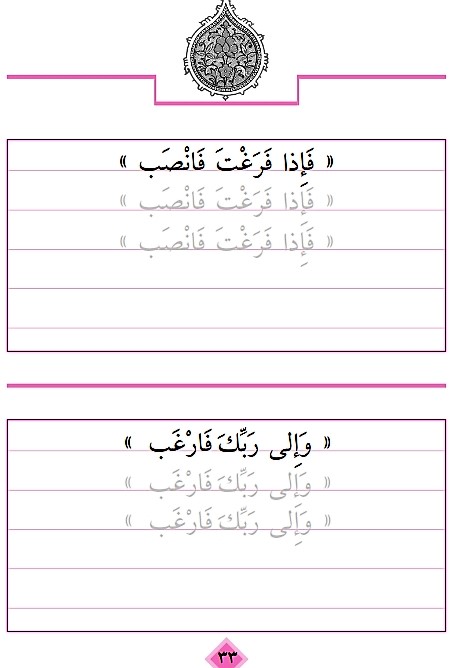 « فَإِذا فَرَغْتَ فَانْصَب »
« فَإِذا فَرَغْتَ فَانْصَب »
« فَإِذا فَرَغْتَ فَانْصَب »
« وَإِلى رَبِّكَ فَارْغَب »
« وَإِلى رَبِّكَ فَارْغَب »
« وَإِلى رَبِّكَ فَارْغَب »
٣٣